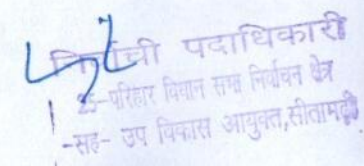 निर्वाची पदाधिकारी
25-परिहार विधान सभा निर्वाचन क्षेत्र
-सह- उप विकास आयुक्त, सीतामढ़ी